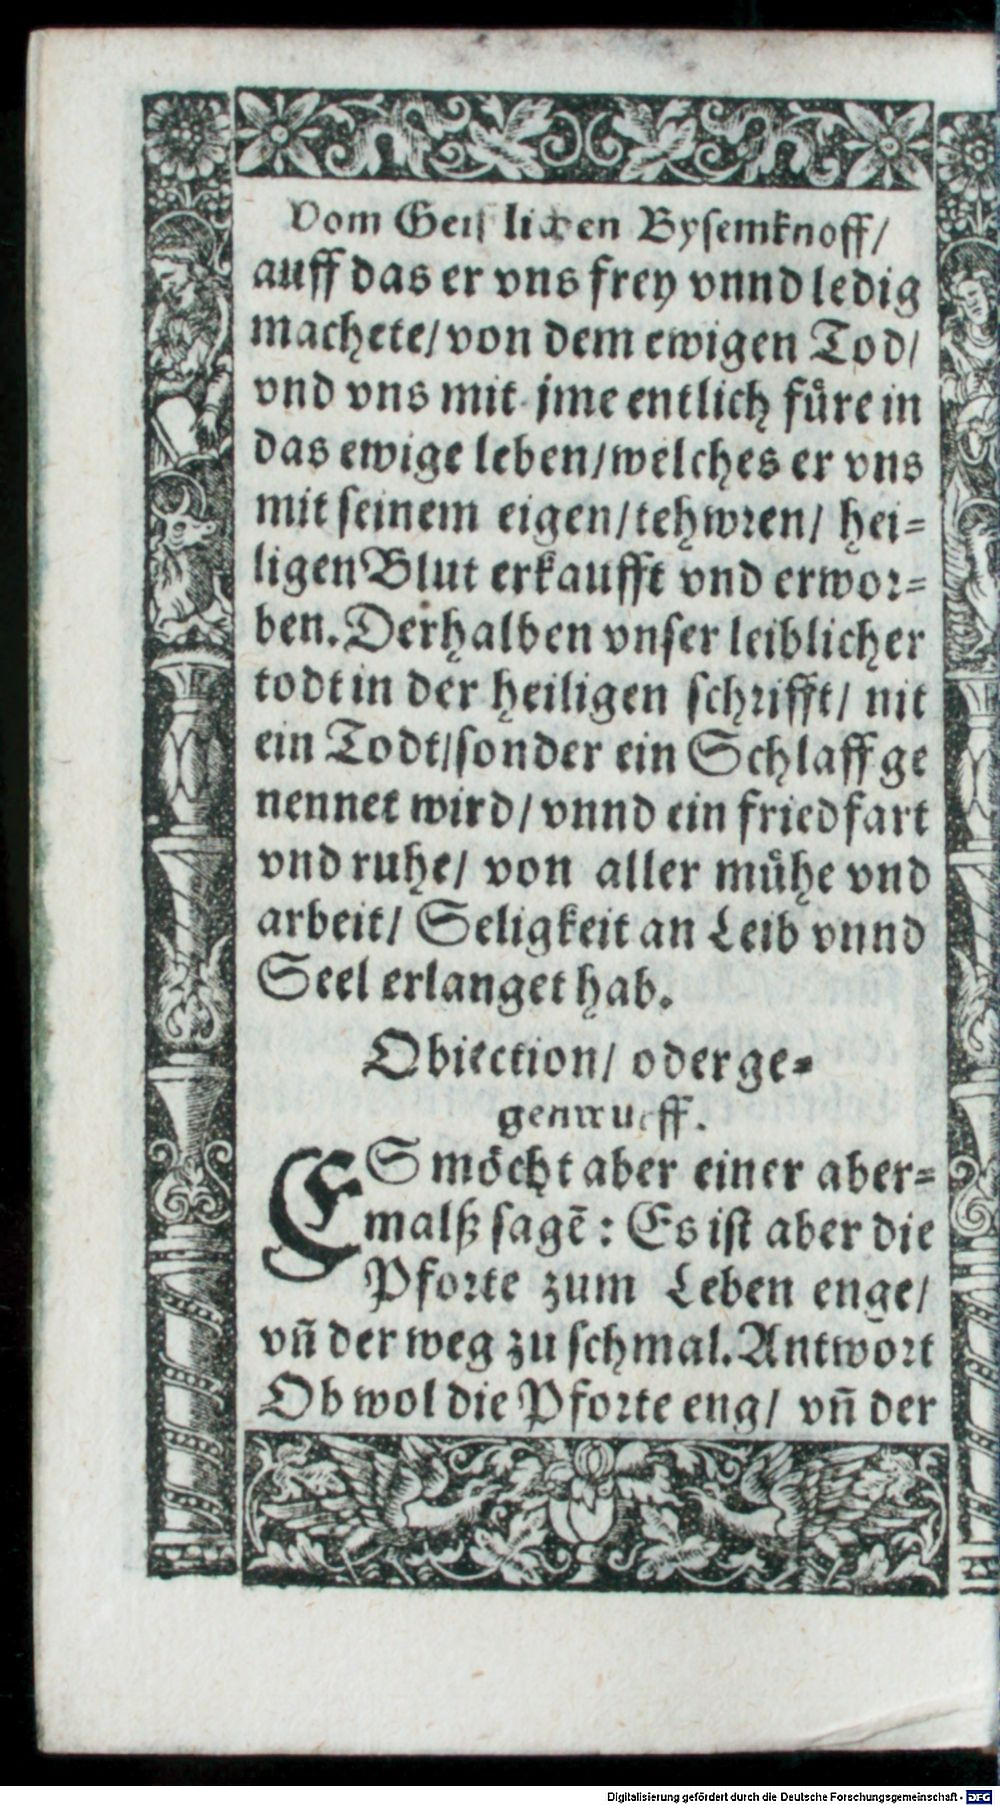 Vom Geiſtlichen Byſemknoff/
auff das er vns frey vnnd ledig
machete/ von dem ewigen Tod/
vnd vns mit jme entlich fuͤre in
das ewige leben/ welches er vns
mit ſeinem eigen/ tehwren/ hei-
ligen Blut erkaufft vnd erwor-
ben. Derhalben vnſer leiblicher
todt in der heiligen ſchrifft/ nit
ein Todt/ ſonder ein Schlaff ge
nennet wird/ vnnd ein friedfart
vnd ruhe/ von aller muͤhe vnd
arbeit/ Seligkeit an Leib vnnd
Seel erlanget hab.
Obiection/ oder ge-
genwurff.
ES moͤcht aber einer aber-
malß ſagē: Es iſt aber die
Pforte zum Leben enge/
vñ der weg zu ſchmal. Antwort
Ob wol die Pforte eng/ vñ der
Digitalisierung gefördert durch die Deutsche Forschungsgemeinschaft - DFG